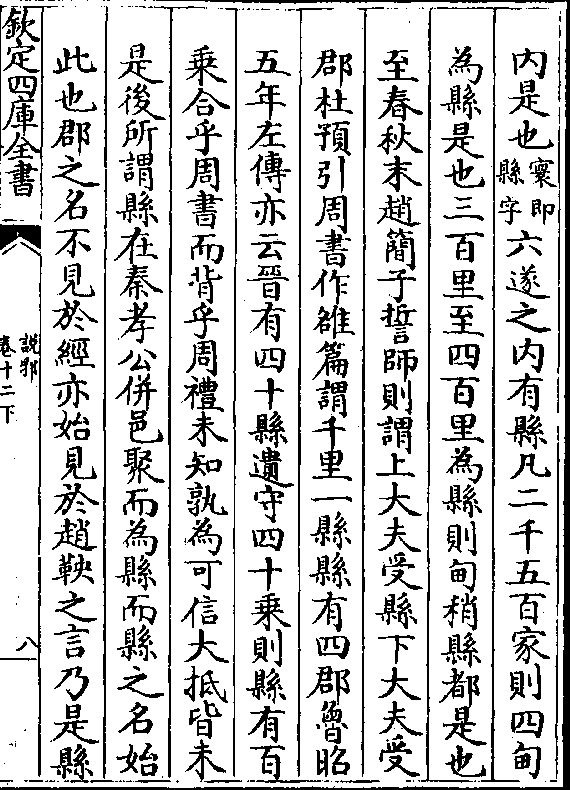 内是也寰即縣字六遂之内有縣凡二千五百家則四甸
為縣是也三百里至四百里為縣則甸稍縣都是也
至春秋末趙簡子誓師則謂上大夫受縣下大夫受
郡杜預引周書作雒篇謂千里一縣縣有四郡魯昭
五年左傳亦云晉有四十縣遺守四十乘則縣有百
乘合乎周書而背乎周禮未知孰為可信大抵皆未
是後所謂縣在秦孝公併邑聚而為縣而縣之名始
此也郡之名不見於經亦始見於趙鞅之言乃是縣
欽定四庫全書
說郛
卷十二下
八